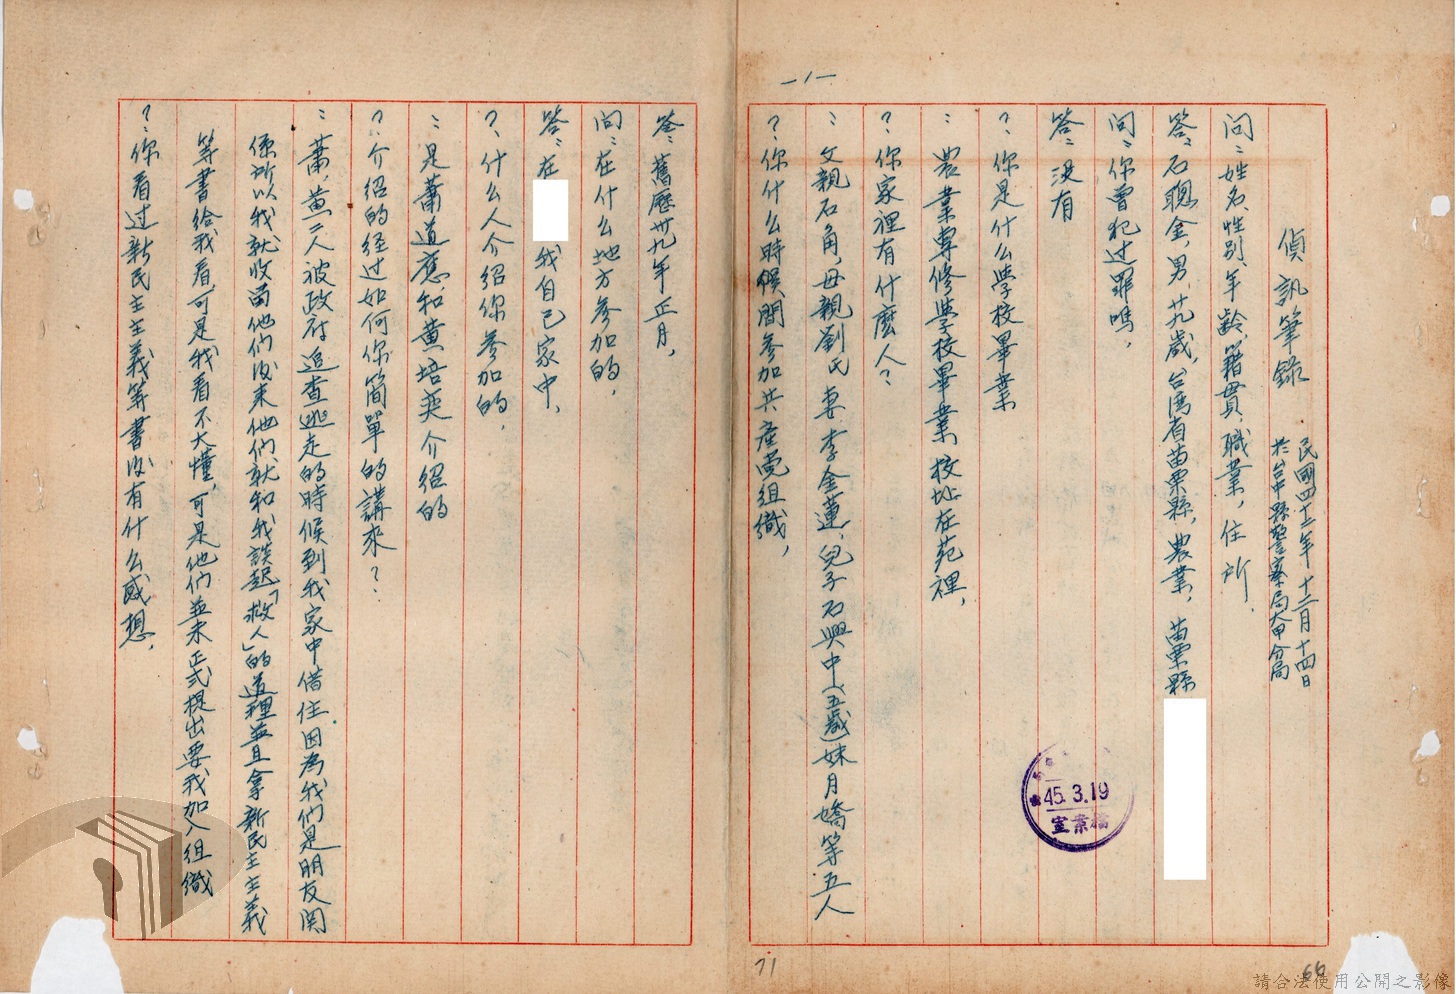 一1一
偵訊筆錄
民國四十三年十二月十四日
於台中縣警察局大甲分局
問：姓名、性別、年齡、籍貫、職業，住所．
答：石聰金，男，廿九歲，台湾省苗栗縣，農業，苗栗縣
問：你曾犯过罪嗎，
答：沒有
？：你是什么學校畢業
：農業專修學校畢業，校址在苑裡，
？：你家裡有什麼人？
：父親石角，母親劉氏 妻 李金蓮，兒子石興中（五歲）妹月嬌等五人
？：你什么時候間參加共產党組織，
答：舊歷卅九年正月，
問：在什么地方參加的，
答：在 我自己家中，
？：什么人介紹你參加的，
：是蕭道應和黃培奕介紹的
？：介紹的経过如何你簡單的講來？
：蕭，黃二人被政府追查逃走的時候到我家中借住因為我們是朋友関
係所以我就收留他們後來他們就和我談起「救人」的道理並且拿新民主主義
等書給我看，可是我看不大懂，可是他們並未正式提出要我加入組織
？：你看过新民主主義等書後有什么感想，
45.3.19
檔案室
71
66
請合法使用公開之影像